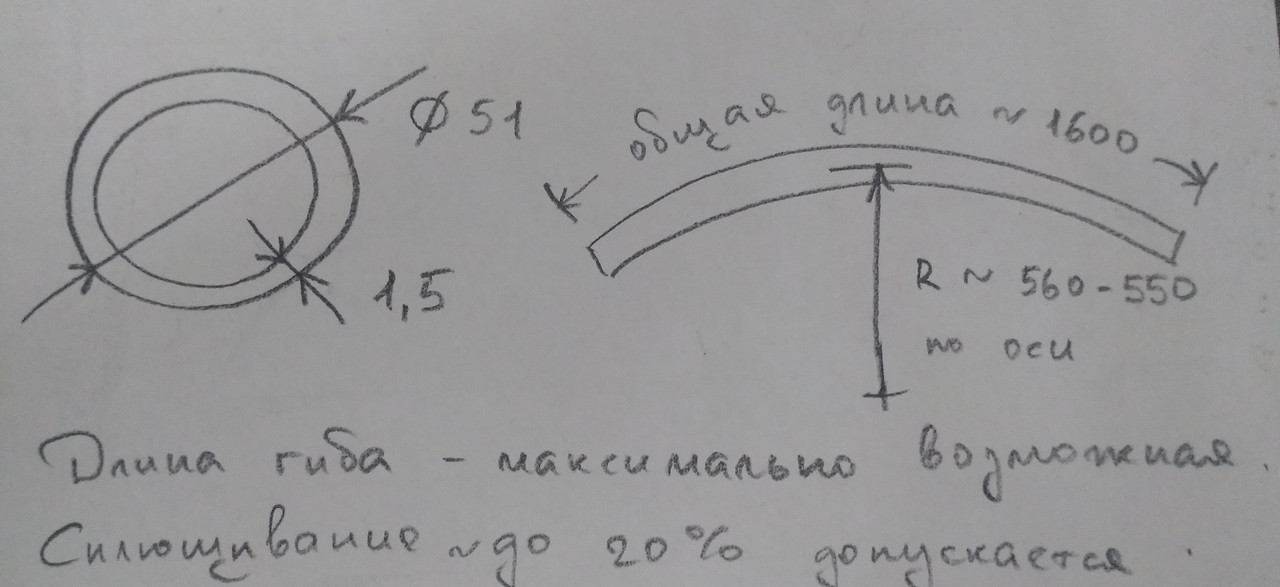 Ø 51
1,5
общая длина ~ 1600
R ~ 560-550
по оси
Длина гиба - максимально возможная.
Сплющивание ~ до 20% допускается.